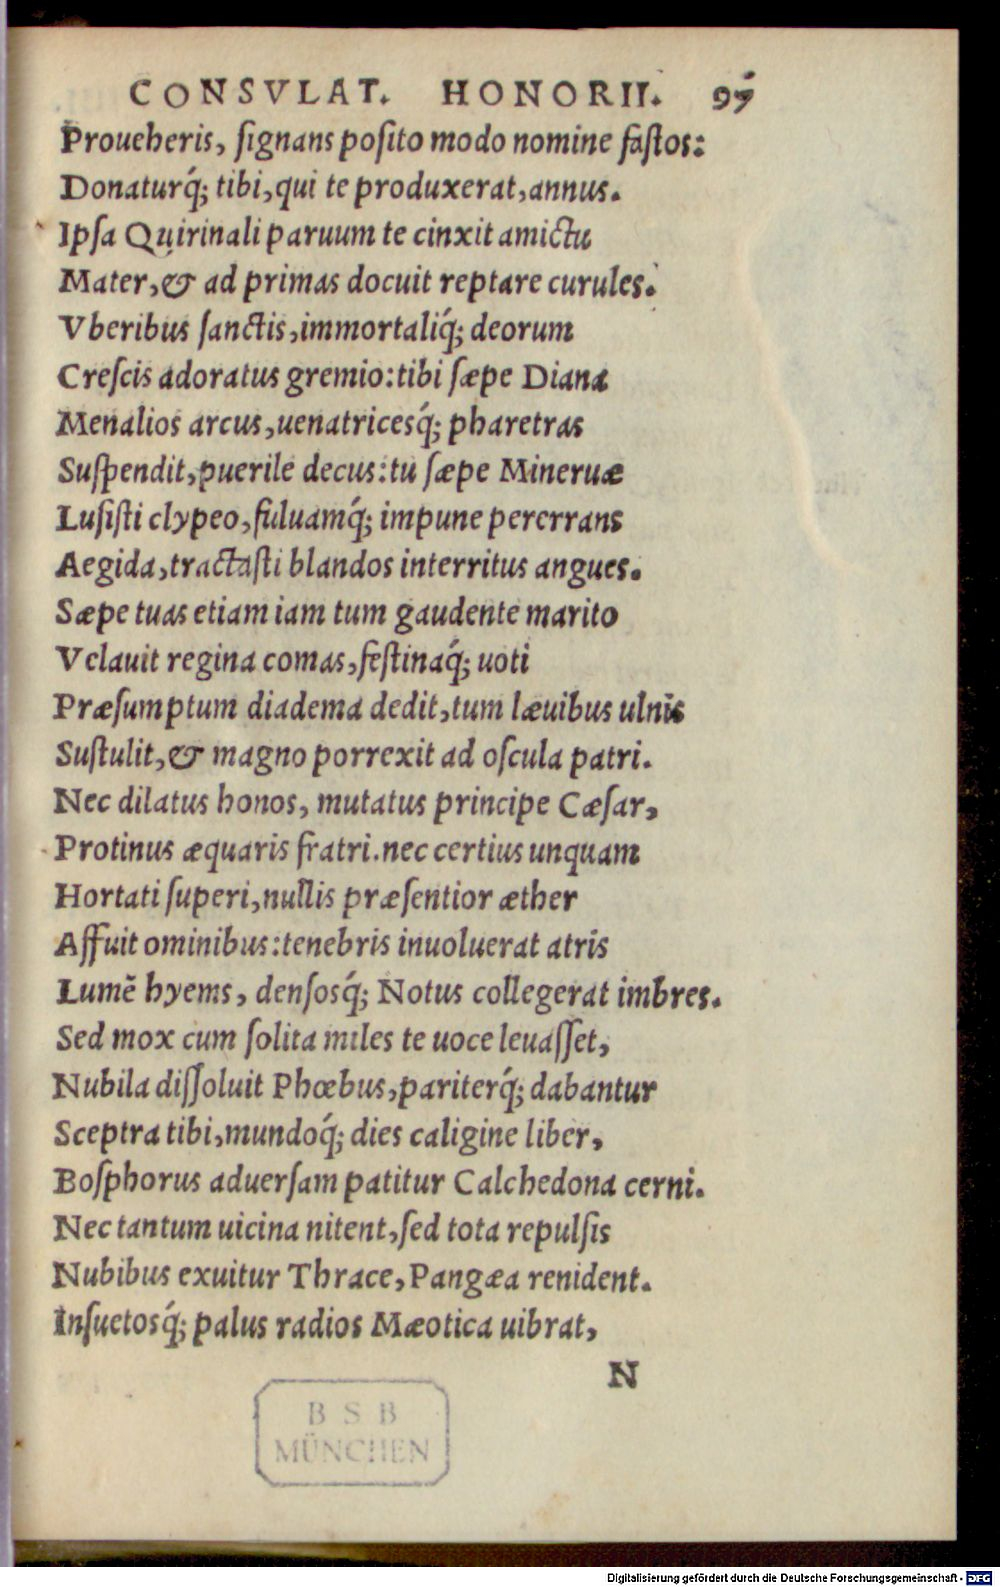 CONSVLAT. HONORII. 97
Proueheris, ſignans poſito modo nomine faſtos:
Donaturq́; tibi,qui te produxerat,annus.
Ipſa Quirinali paruum te cinxit amictu
Mater,& ad primas docuit reptare curules.
Vberibus ſanctis,immortaliq́; deorum
Creſcis adoratus gremio:tibi ſæpe Diana
Menalios arcus,uenatricesq́; pharetras
Suſpendit,puerile decus:tu ſæpe Mineruæ
Luſiſti clypeo,fuluamq́; impune pererrans
Aegida,tractaſti blandos interritus angues.
Sæpe tuas etiam iam tum gaudente marito
Velauit regina comas,feſtinaq́; uoti
Præſumptum diadema dedit,tum læuibus ulnis
Suſtulit,& magno porrexit ad oſcula patri.
Nec dilatus honos, mutatus principe Cæſar,
Protinus æquaris fratri.nec certius unquam
Hortati ſuperi,nullis præſentior æther
Affuit ominibus:tenebris inuoluerat atris
Lumē hyems, denſosq́; Notus collegerat imbres.
Sed mox cum ſolita miles te uoce leuaſſet,
Nubila diſſoluit Phœbus,pariterq́; dabantur
Sceptra tibi,mundoq́; dies caligine liber,
Boſphorus aduerſam patitur Calchedona cerni.
Nec tantum uicina nitent,ſed tota repulſis
Nubibus exuitur Thrace,Pangæa renident.
Inſuetosq́; palus radios Mæotica uibrat,
N
B S B
MÜNCHEN
Digitalisierung gefördert durch die Deutsche Forschungsgemeinschaft - DFG